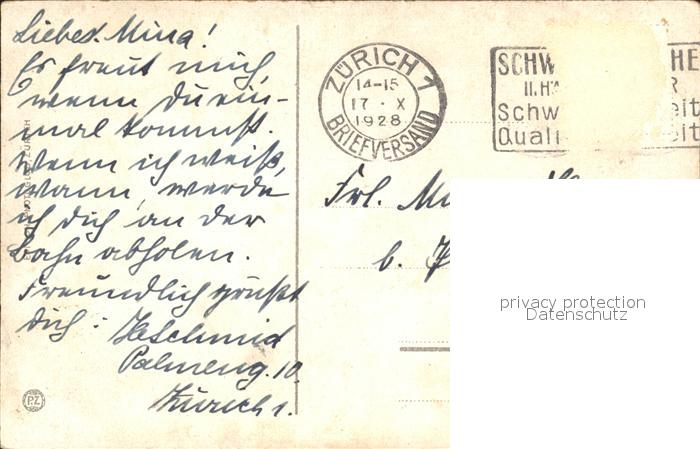 Liebes Mina!
Es freut mich,
wenn du ein-
mal kommst.
Wenn ich weiß,
wann, werde
ich dich an der
Bahn abholen.
Freundlich grüßt
dich:
Palmeng. 10.
Zürich 1.
PZ
ZÜRICH 1
14-15
17 · X
1928
BRIEFVERSAND
SCHW HE
II. R
Schw eit
Quali it
Frl. M
b.
privacy protection
Datenschutz